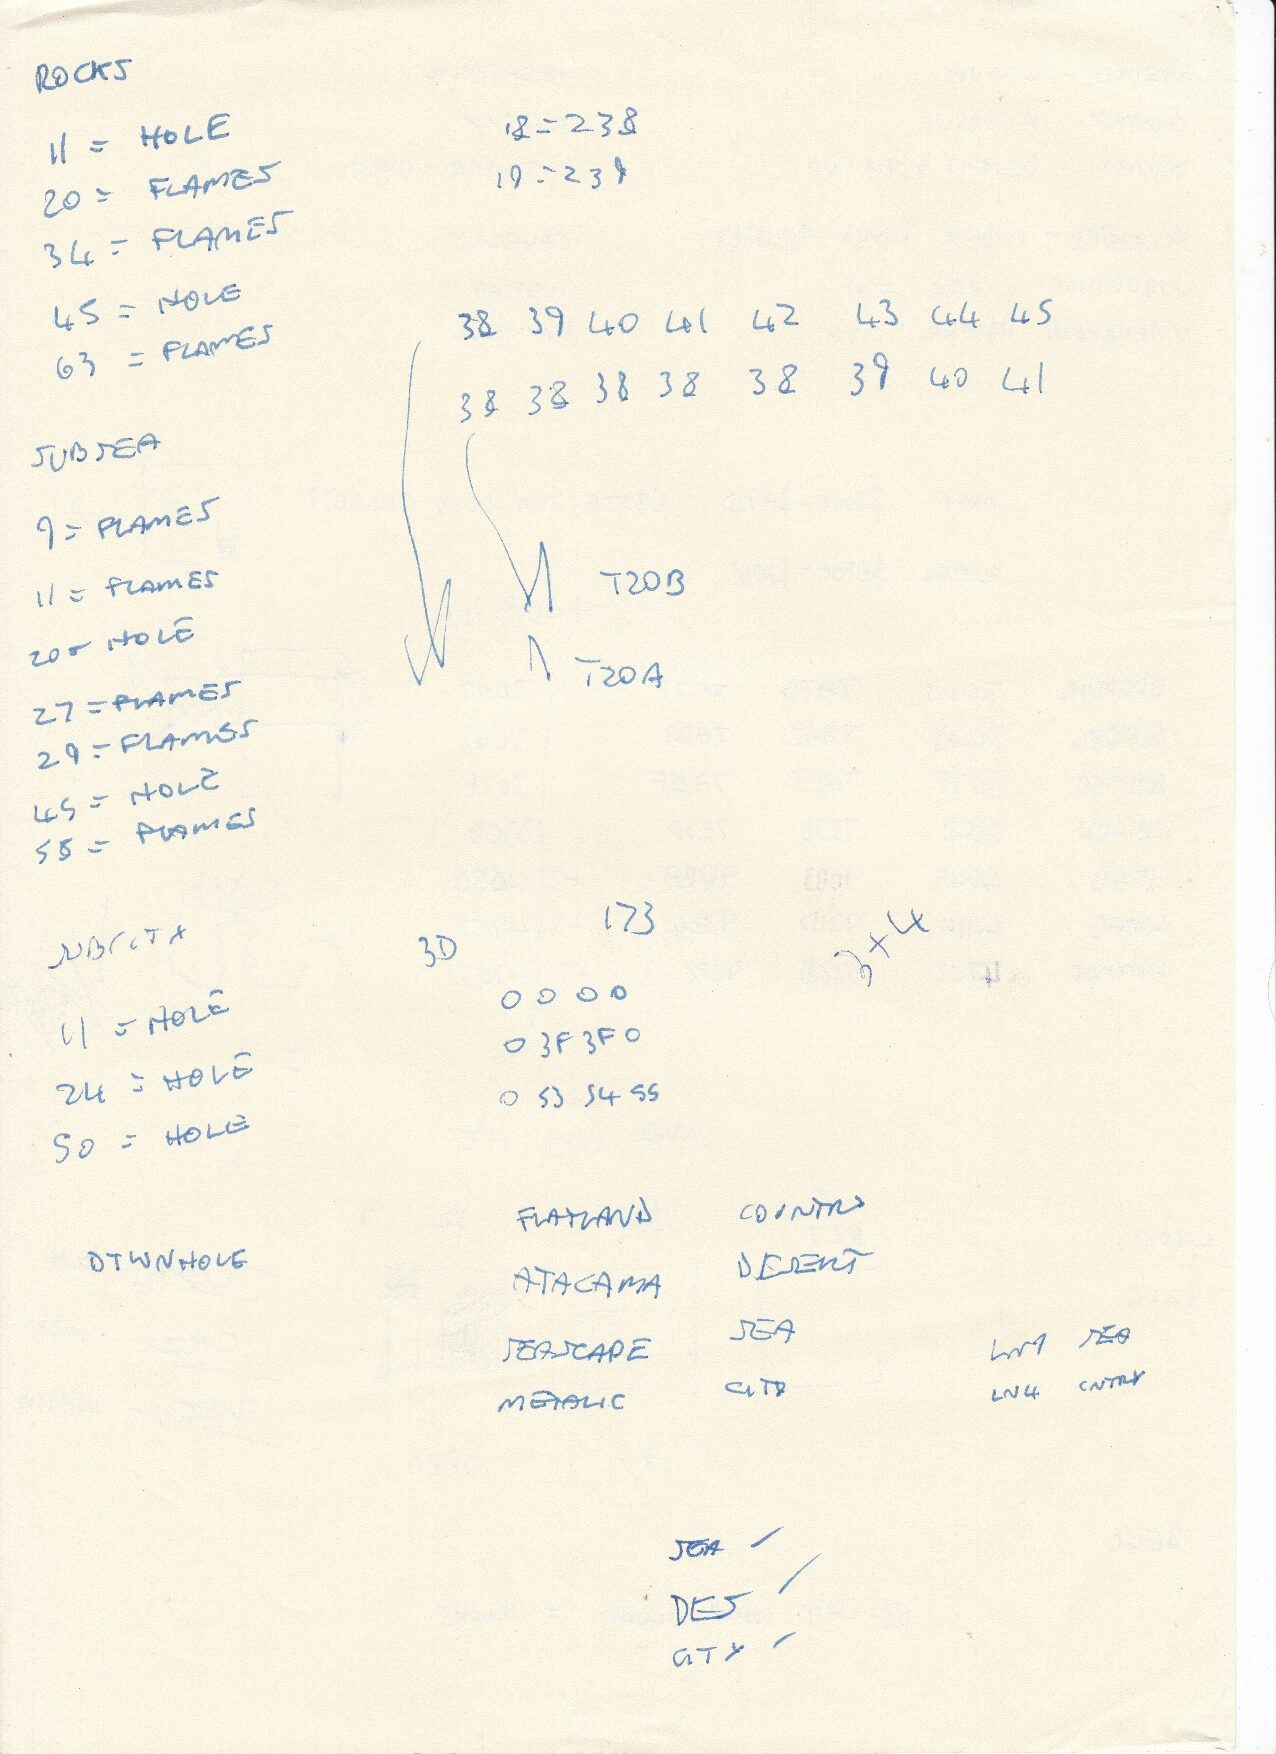 ROCKS
11 = HOLE
20 = FLAMES
34 = FLAMES
45 = HOLE
63 = FLAMES
18 = 238
19 = 239
38 39 40 41 42 43 44 45
38 38 38 38 38 39 40 41
T20B
T20A
SUBSEA
9 = FLAMES
11 = FLAMES
20 = HOLE
27 = FLAMES
29 = FLAMES
45 = HOLE
58 = FLAMES
SUBCITY
11 = HOLE
24 = HOLE
50 = HOLE
DTWNHOLE
3D
173
3+4
0 0 0 0
0 3F 3F 0
0 53 54 55
FLATLAND COUNTRY
ATACAMA DESERT
SEASCAPE SEA
METALIC CITY
SEA
LN4 CNTRY
SEA
DES
CITY